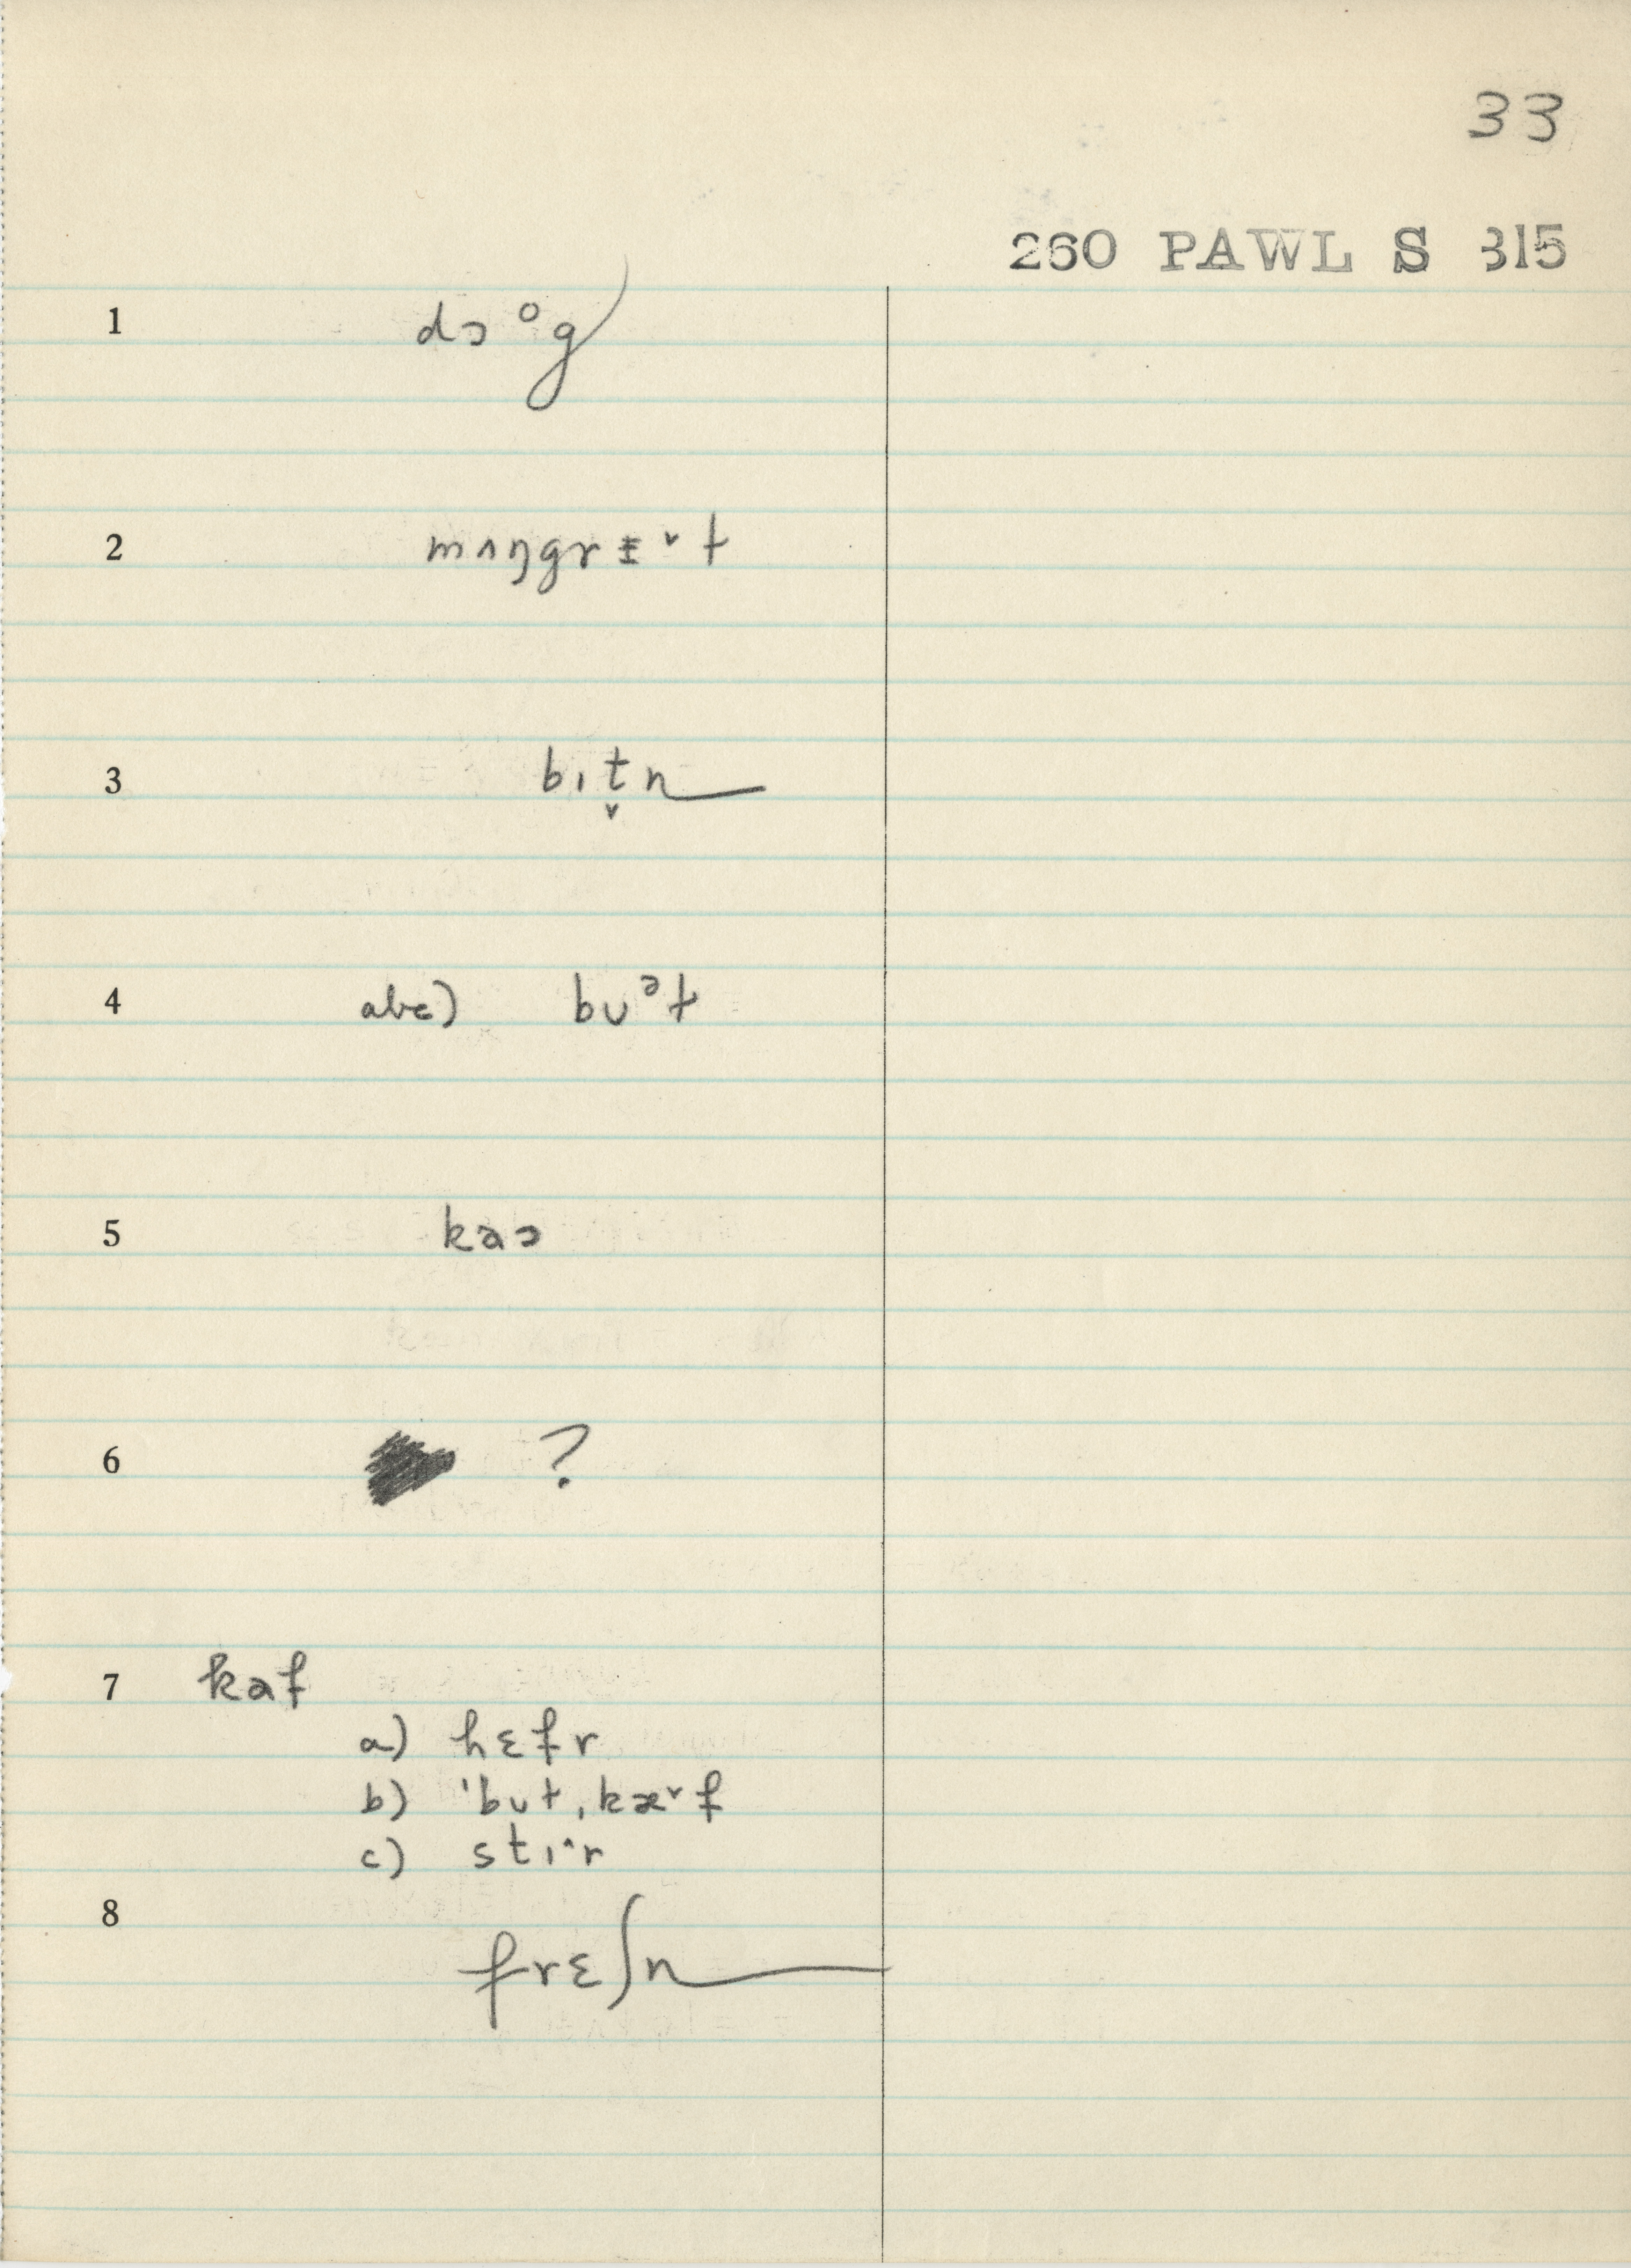 33
260 PAWL S 315
1 dɔᵒg
2 mʌŋgrɪ̵ˇt
3 bɪt̬n
4 abc) bʊᵊt
5 kaɔ
6 ?
7 kaf
a) hɛfr
b) ˈbʊt,kæˇf
c) stɪˆr
8 frɛʃn